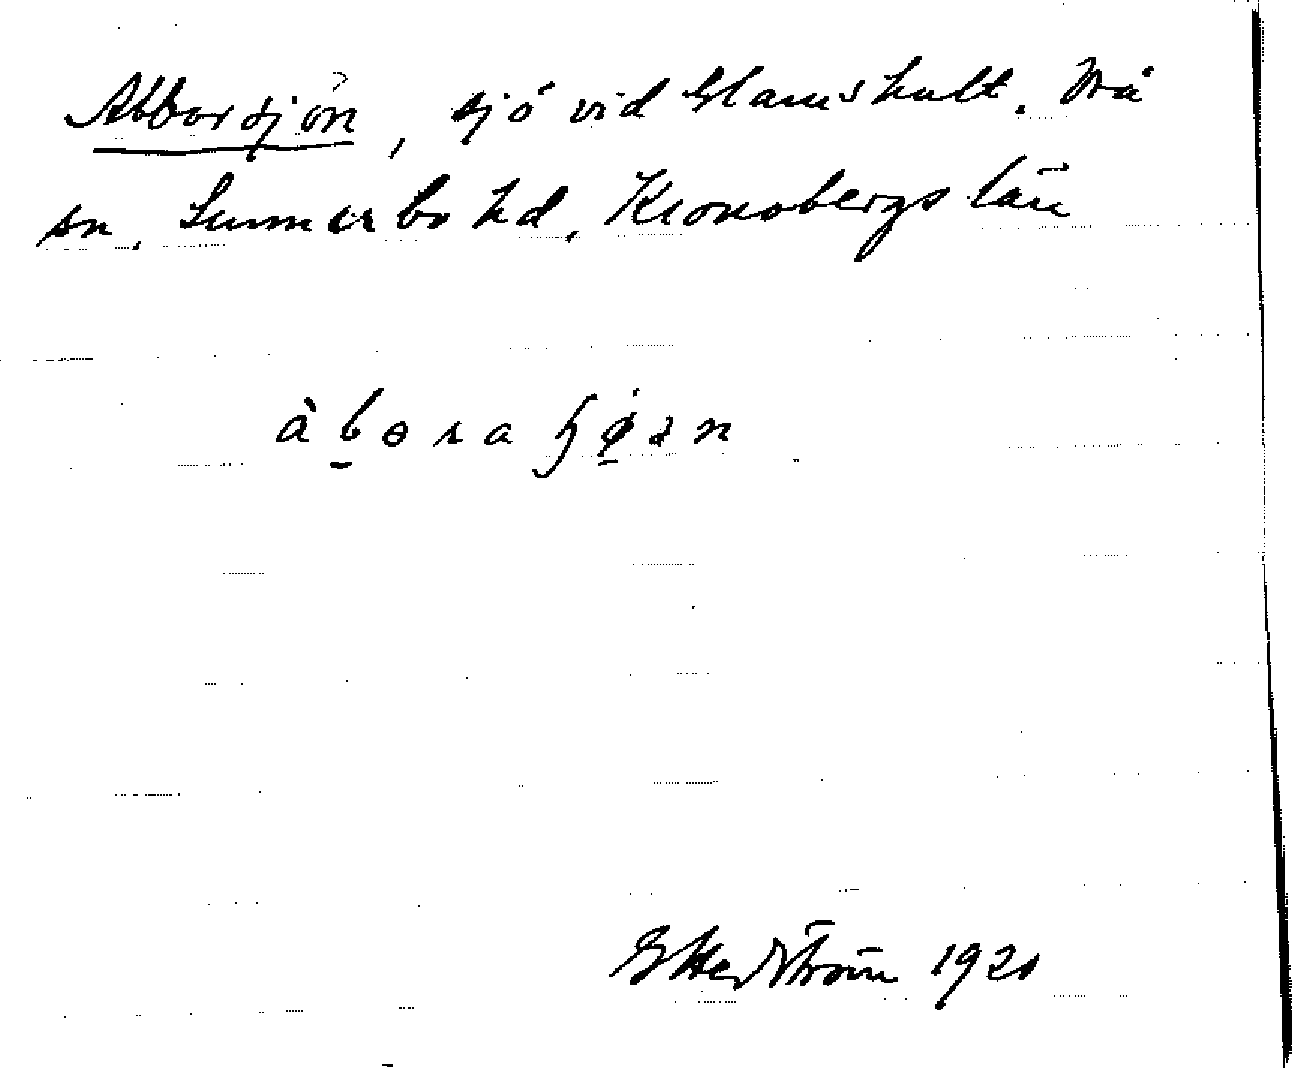 Abborsjön, sjö vid Glamshult. Vrå
sn. Sunnerbo hd. Kronobergs län
àboraɧøən
G Hedström 1920